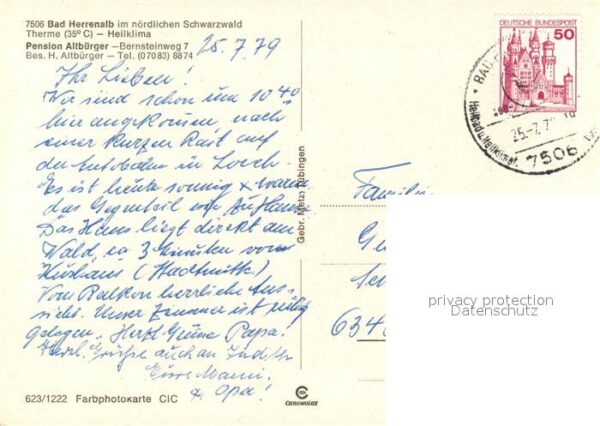 7506 Bad Herrenalb im nördlichen Schwarzwald
Therme (35° C) – Heilklima
Pension Altbürger – Bernsteinweg 7
Bes. H. Altbürger – Tel. (07083) 8874
25.7.79
Ihr Lieben!
Wir sind schon um 10⁴⁰
hier angekommen, nach
einer kurzen Rast auf
der Autobahn in
Es ist heute sonnig + warm
das Gegenteil von zu Hause
Das Haus liegt direkt am
Wald, ca 3 Minuten vom
Kurhaus (Stadtmitte)
Vom Balkon herrliche Aus-
sicht. Unser Zimmer ist ruhig
gelegen. Herzl. Grüße Papa!
Herzl. Grüße auch an Judith
Eure Mami.
& Opa!
623/1222 Farbphotokarte CIC
Gebr. Metz, Tübingen
CHROMOLUX
DEUTSCHE BUNDESPOST
50
BAD
Heilbad u. Heilklimat.
25.-7.7
7506
Familie
634
privacy protection
Datenschutz